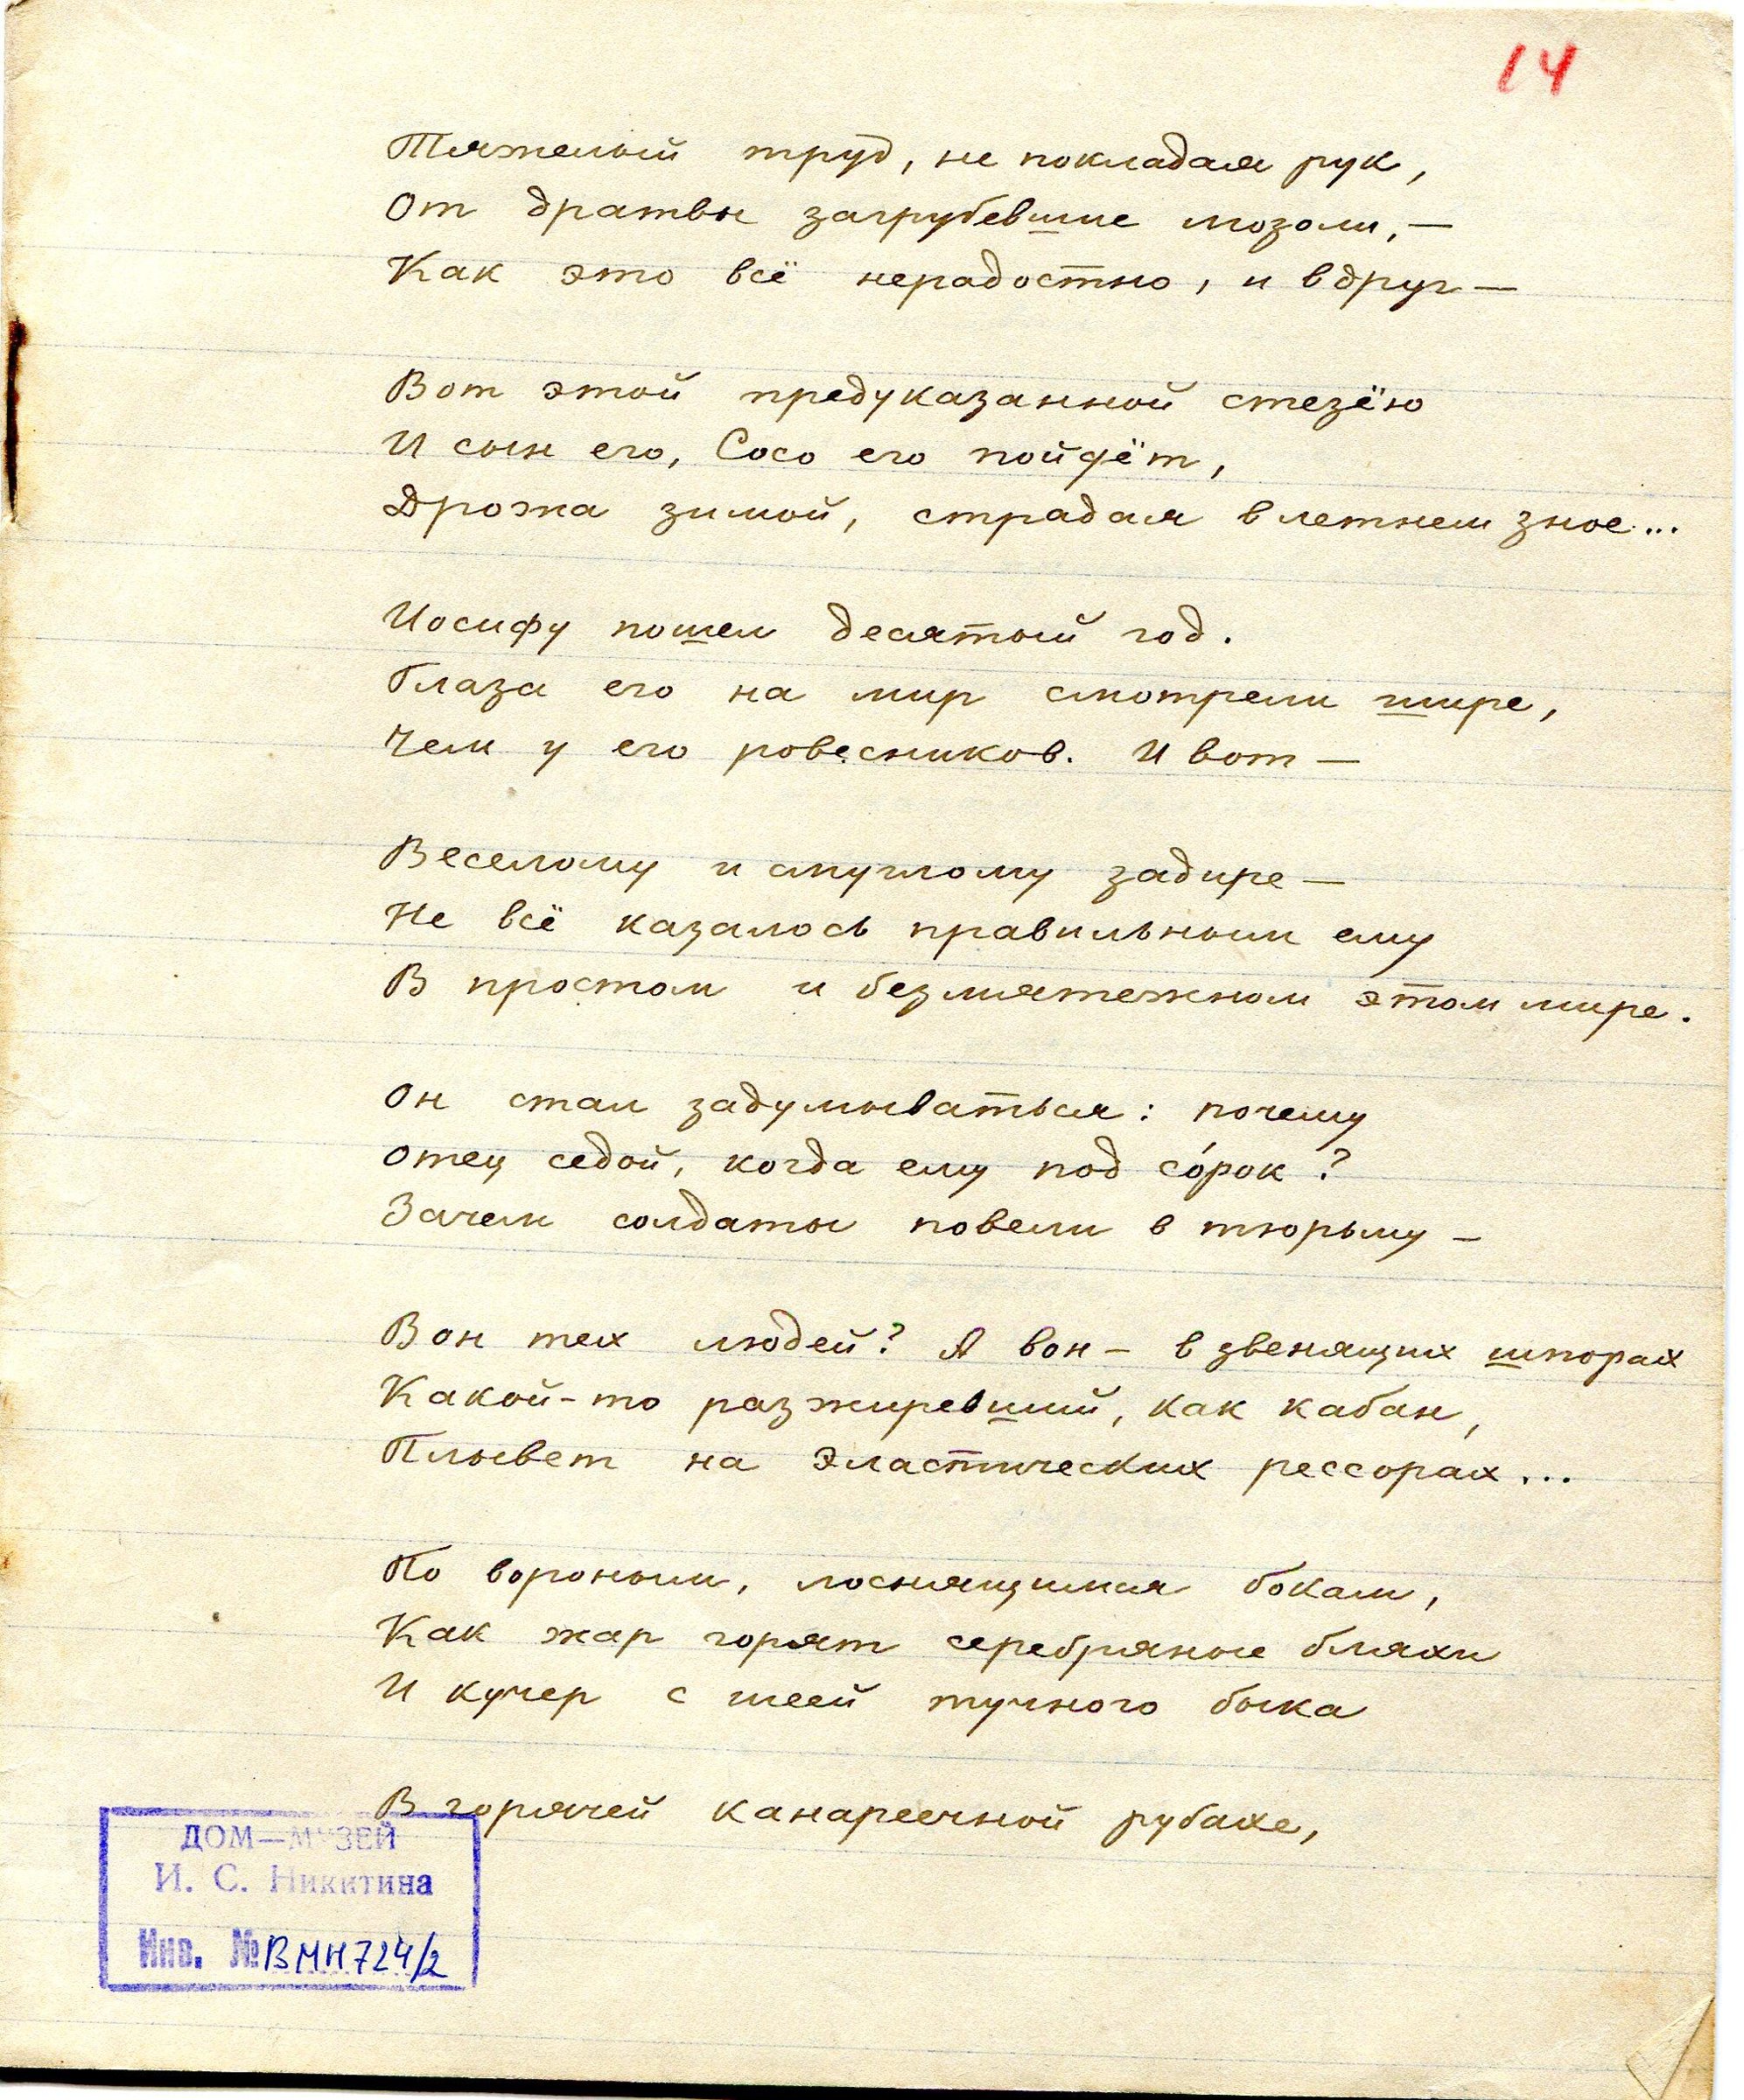 14
Тяжелый труд, не покладая рук,
От дратвы загрубевшие мозоли, —
Как это всё нерадостно, и вдруг —
Вот этой предуказанной стезёю
И сын его, Сосо его пойдёт,
Дрожа зимой, страдая в летнем зное...
Иосифу пошел десятый год.
Глаза его на мир смотрели шире,
Чем у его ровесников. И вот —
Веселому и смуглому задире —
Не всё казалось правильным ему
В простом и безмятежном этом мире.
Он стал задумываться: почему
Отец седой, когда ему под со́рок?
Зачем солдаты повели в тюрьму —
Вон тех людей? А вон — в звенящих шпорах
Какой-то разжиревший, как кабан,
Плывет на эластических рессорах...
По вороным, лоснящимся бокам,
Как жар горят серебряные бляхи
И кучер с шеей тучного быка
В горячей канареечной рубахе,
ДОМ—МУЗЕЙ
И. С. Никитина
Инв. № ВМН 724/2